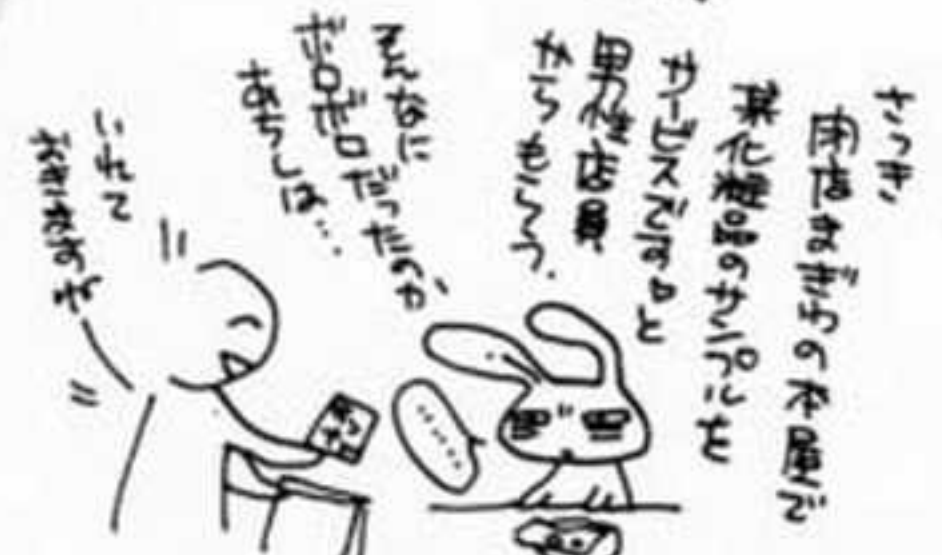 さっき
閉店まぎわの本屋で
某化粧品のサンプルを
サービスです♡と
男性店員
からもらう.
そんなに
ボロボロだったのか
あちしは…
いれて
おきますね
……